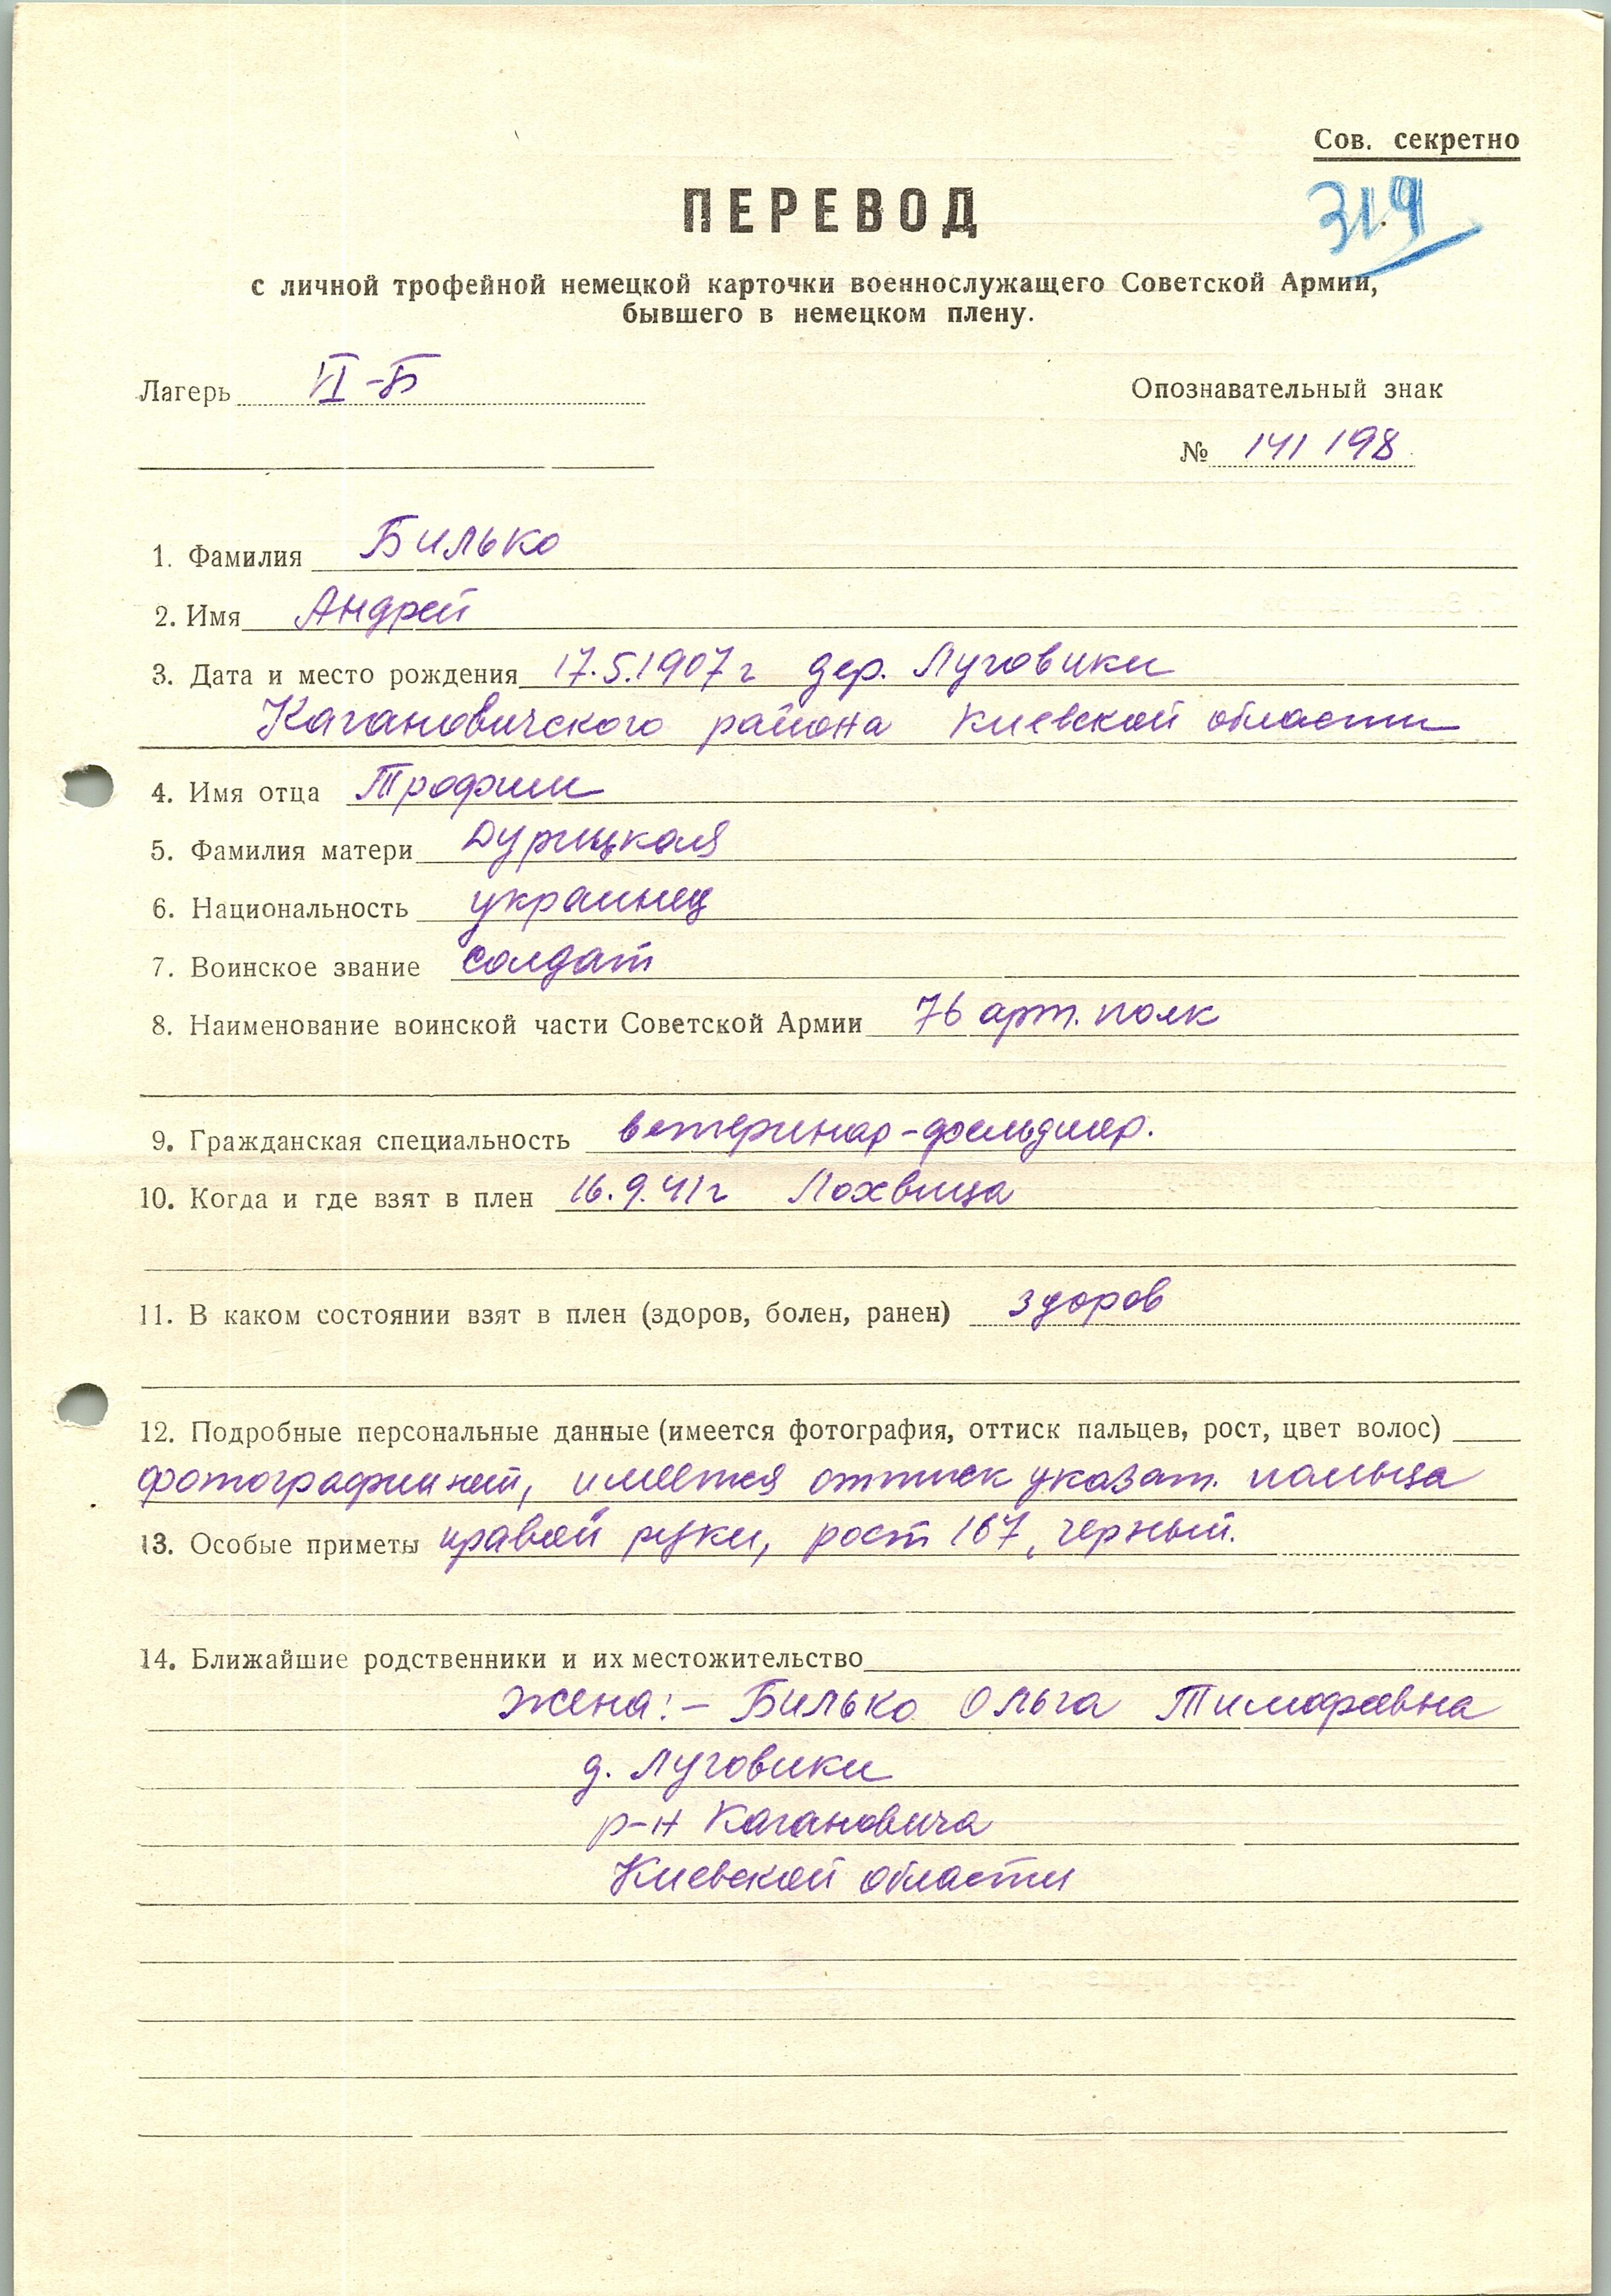 Сов. секретно
319
ПЕРЕВОД
с личной трофейной немецкой карточки военнослужащего Советской Армии,
бывшего в немецком плену.
Лагерь VI-Б
Опознавательный знак
№ 141198
1. Фамилия Билько
2. Имя Андрей
3. Дата и место рождения 17.5.1907 г дер. Луговики
Кагановичского района Киевской области
4. Имя отца Трофим
5. Фамилия матери Дурицкая
6. Национальность украинец
7. Воинское звание солдат
8. Наименование воинской части Советской Армии 76 арт. полк
9. Гражданская специальность ветеринар-фельдшер.
10. Когда и где взят в плен 16.9.41 г Лохвица
11. В каком состоянии взят в плен (здоров, болен, ранен) здоров
12. Подробные персональные данные (имеется фотография, оттиск пальцев, рост, цвет волос)
фотографии нет, имеется оттиск указат. пальца
13. Особые приметы правой руки, рост 167, черный.
14. Ближайшие родственники и их местожительство
жена:- Билько Ольга Тимофеевна
д. Луговики
р-н Кагановича
Киевской области